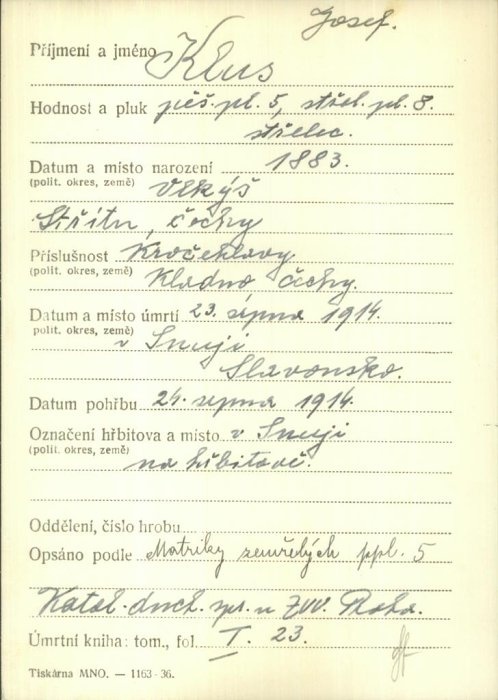 Josef.
Příjmení a jméno Klus
Hodnost a pluk pěš. pl. 5, střel. pl. 8.
střelec.
Datum a místo narození 1883.
(polit. okres, země) Vlkýš
Stříbro, Čechy
Příslušnost Kročehlavy
(polit. okres, země) Kladno Čechy.
Datum a místo úmrtí 23. srpna 1914.
polit. okres, země) v Smuji
Slavonsko.
Datum pohřbu 24. srpna 1914.
Označení hřbitova a místo v Smuji
(polit. okres, země) na hřbitově.
Oddělení, číslo hrobu
Opsáno podle Matriky zemřelých ppl. 5
Katol. duch. spr. u ZVV. Praha.
Úmrtní kniha: tom., fol. I. 23.
Tiskárna MNO. — 1163-36.